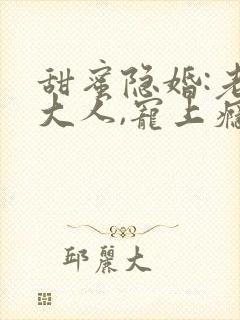 甜蜜隐婚:老
大人,宠上瘾
邱麗大